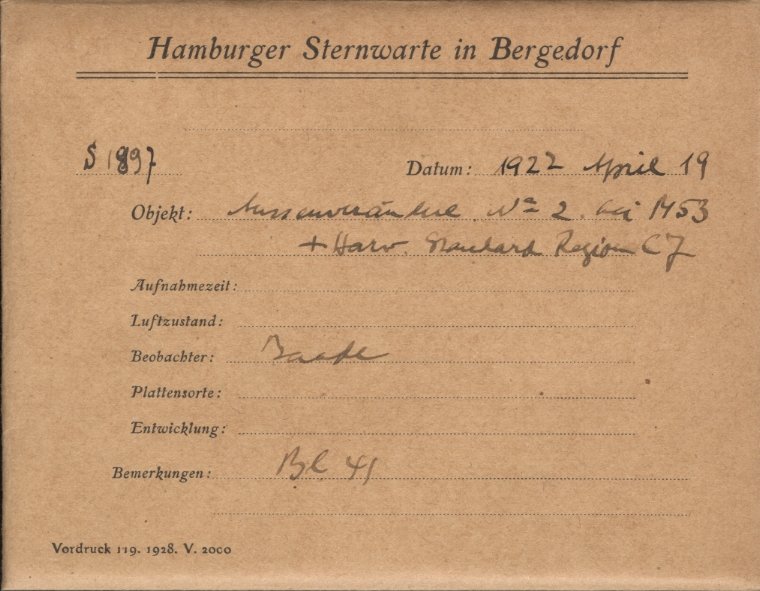 Hamburger Sternwarte in Bergedorf
S 1897
Datum: 1922 April 19
Objekt: Aussenveränderl. No 2 bei M53
+ Harv. Standard Region C7
Aufnahmezeit:
Luftzustand:
Beobachter: Baade
Plattensorte:
Entwicklung:
Bemerkungen: Bl 41
Vordruck 119. 1928. V. 2000